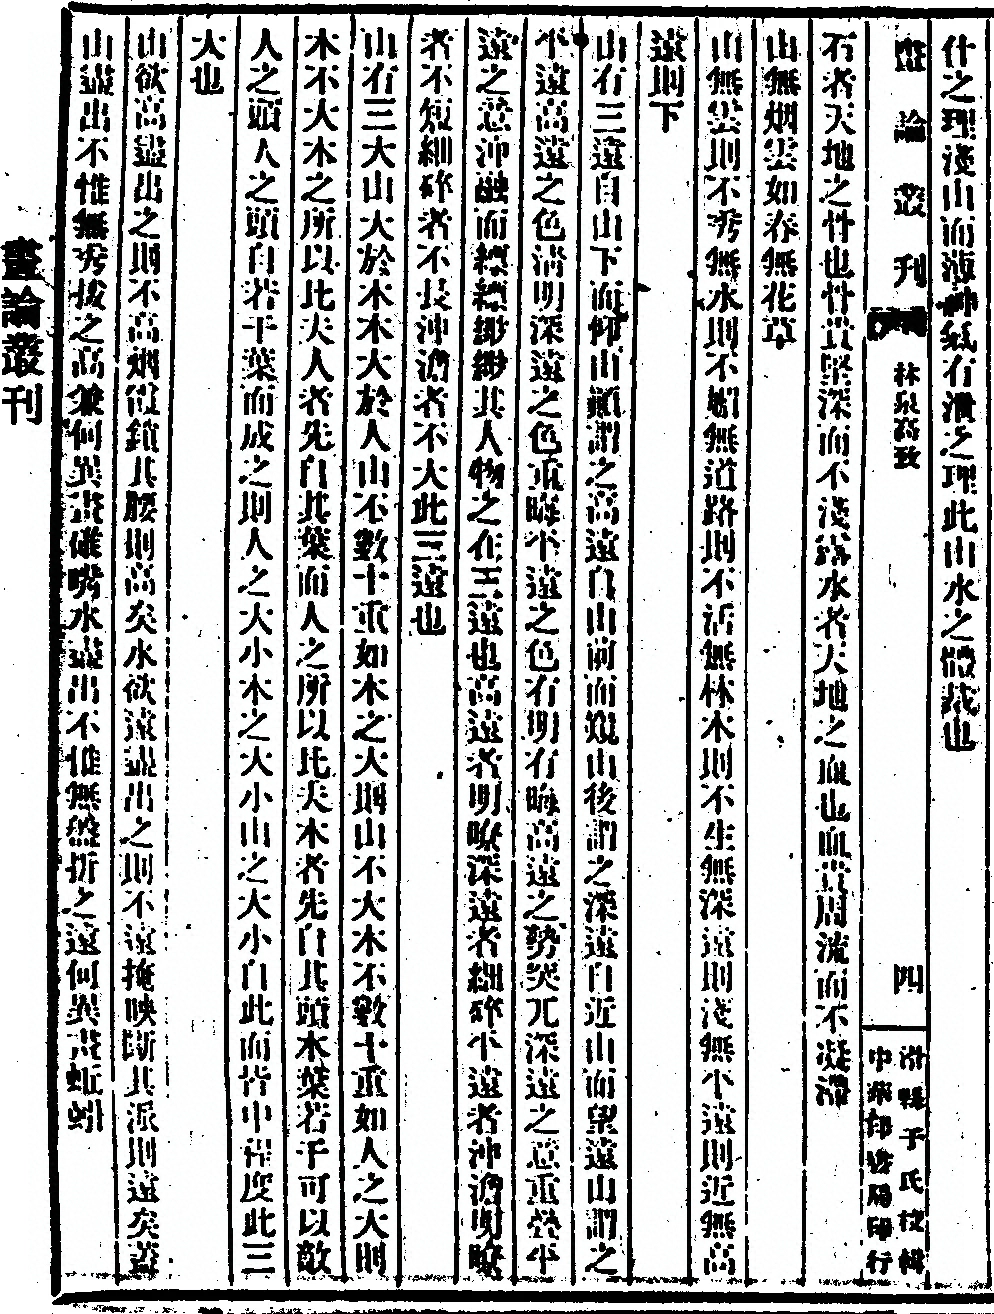 什之理淺山而薄神紙有潰之理此山水之體裁也
畫論叢刊 林泉高致 四 滑縣于氏校輯 中華印書局印行
石者天地之骨也骨貴堅深而不淺露水者天地之血也血貴周流而不凝滯
山無烟雲如春無花草
山無雲則不秀無水則不媚無道路則不活無林木則不生無深遠則淺無平遠則近無高
遠則下
山有三遠自山下而仰山巔謂之高遠自山前而窺山後謂之深遠自近山而望遠山謂之
平遠高遠之色清明深遠之色重晦平遠之色有明有晦高遠之勢突兀深遠之意重疊平
遠之意沖融而縹縹緲緲其人物之在三遠也高遠者明瞭深遠者細碎平遠者沖澹明瞭
者不短細碎者不長沖澹者不大此三遠也
山有三大山大於木木大於人山不數十重如木之大則山不大木不數十重如人之大則
木不大木之所以比夫人者先自其葉而人之所以比夫木者先自其頭木葉若干可以敵
人之頭人之頭自若干葉而成之則人之大小木之大小山之大小自此而皆中程度此三
大也
山欲高盡出之則不高烟霞鎖其腰則高矣水欲遠盡出之則不遠掩映斷其派則遠矣蓋
山盡出不惟無秀拔之高兼何異畫碓嘴水盡出不惟無盤折之遠何異畫蚯蚓
畫論叢刊